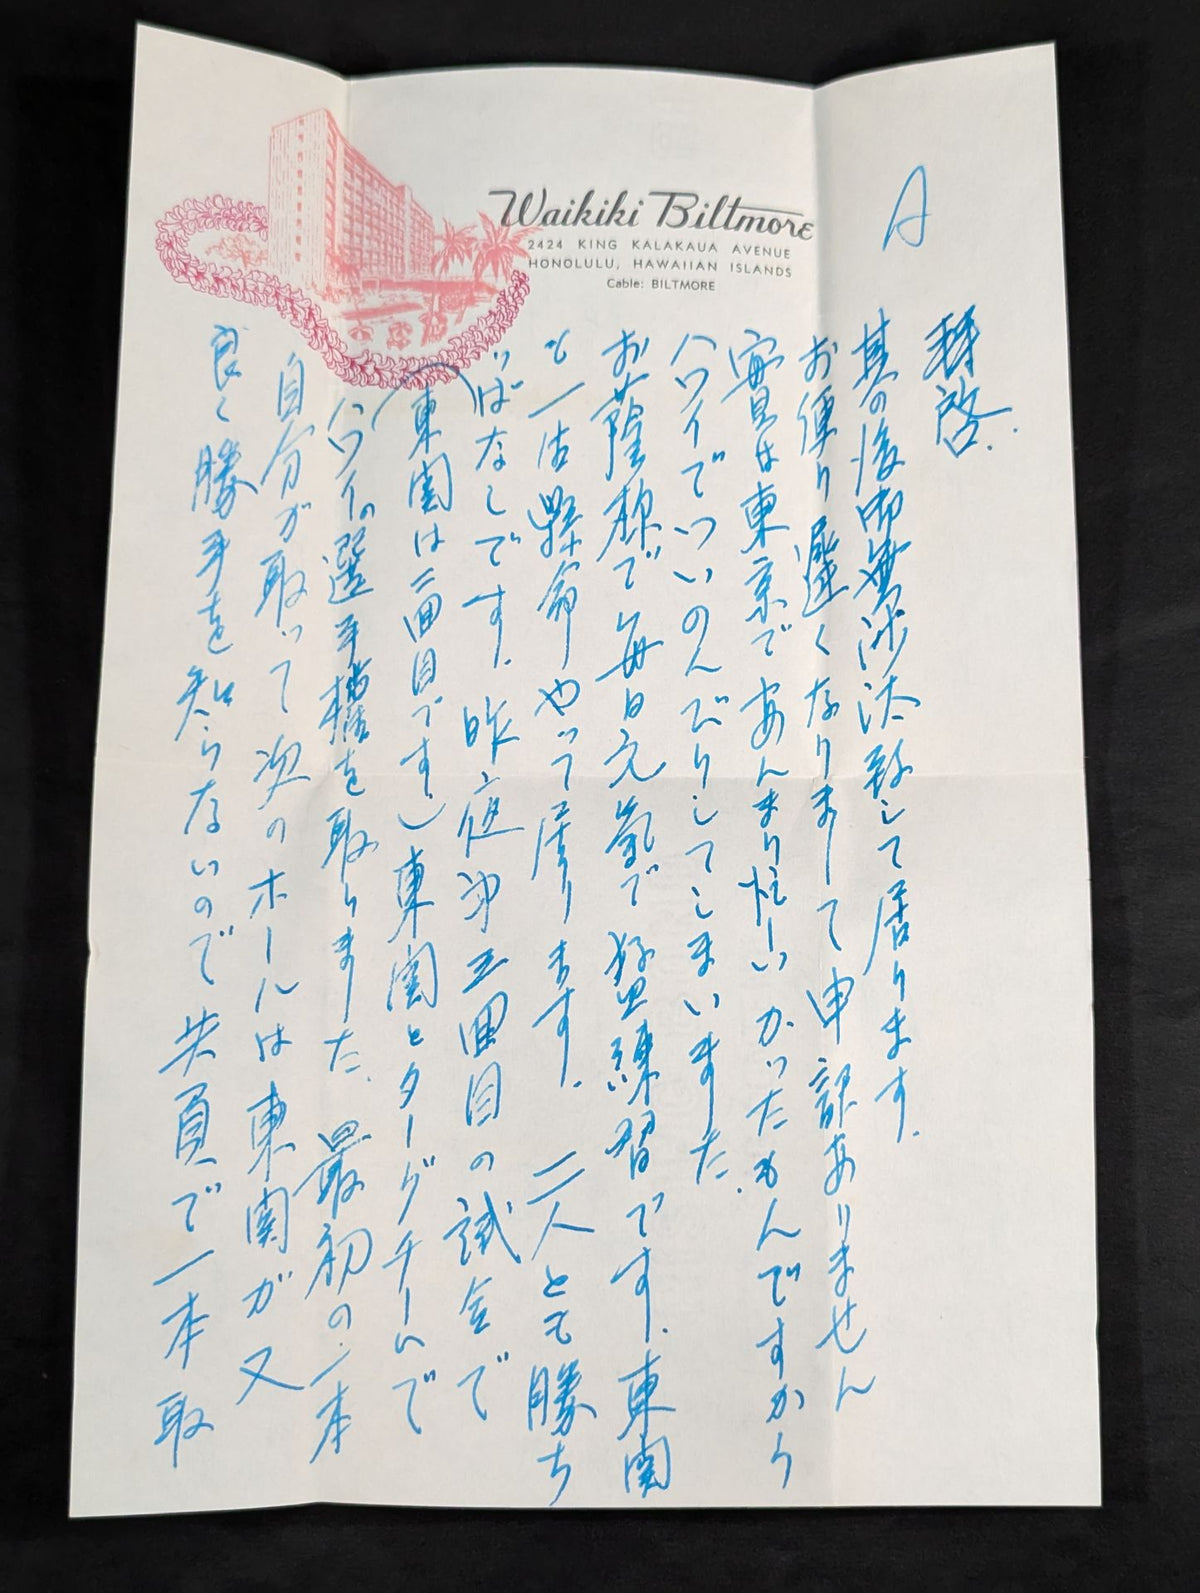 Waikiki Biltmore
2424 KING KALAKAUA AVENUE
HONOLULU, HAWAIIAN ISLANDS
Cable: BILTMORE
A
拝啓.
其の後御無沙汰致して居ります.
お便り遅くなりまして申訳ありません
実は東京であんまり忙しいかったもんですから
ハワイでついのんびりしてしまいました.
お蔭様で毎日元気で猛練習です.東関
と一生懸命やって居ります. 二人とも勝ち
っぱなしです.昨夜沖三回目の試合で
(東関は二回目です)東関とターグチームで
ハワイの選手権を取りました.最初の一本
自分が取って次のホールは東関が又
良く勝手を知らないので失負で一本取